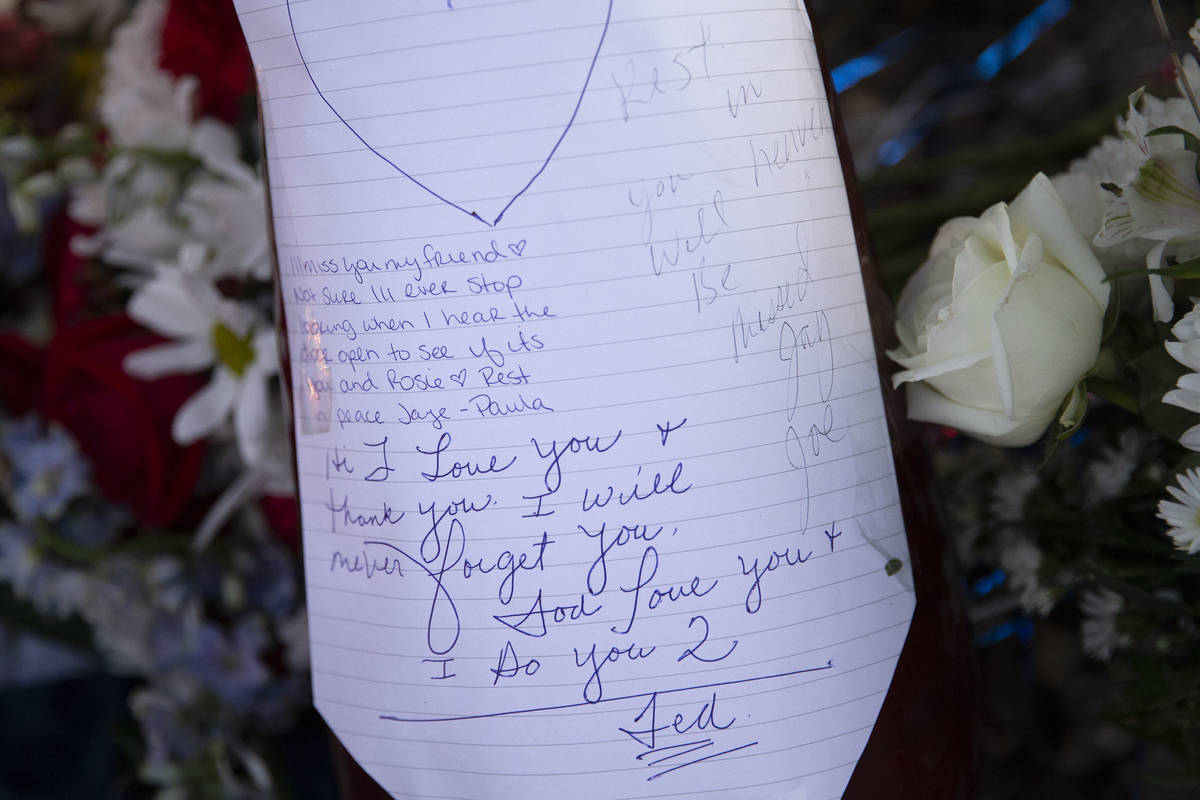 I'll miss you my friend
Not sure I'll ever stop
looking when I hear the
door open to see if its
and Rosie Rest
peace Jaye - Paula
Hi I Love you +
thank you. I will
never forget you.
God love you +
I do you 2
Ted.
Rest
in
heaven
you
will
Be
missed
Jay
Joe